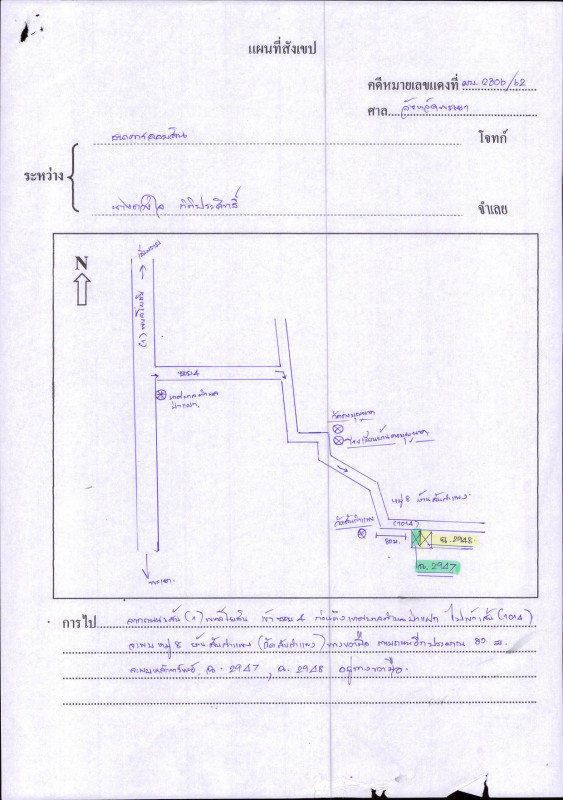 แผนที่สังเขป
คดีหมายเลขแดงที่ ผบ. 2306/62
ศาล จังหวัดพะเยา
ธนาคารออมสิน โจทก์
ระหว่าง
นางดวงใจ กิติประสิทธิ์ จำเลย
N
เชียงราย
(1) พหลโยธิน
ซอย 4
เทศบาลตำบล
ป่าแฝก
วัดดงบุญนาค
โรงเรียนบ้านดงบุญนาค
หมู่ 8 บ้านสันกำแพง
วัดสันกำแพง
(1014)
80ม.
ฉ. 2948
ฉ. 2947
พะเยา
การไป จากถนนเส้น (1) พหลโยธิน เข้าซอย 4 ก่อนถึงเทศบาลตำบลป่าแฝก ไปเส้น (1014)
จะพบ หมู่ 8 บ้านสันกำแพง (วัดสันกำแพง) ทางขวามือ ตามถนนอีกประมาณ 80 ม.
จะพบหลักทรัพย์ ฉ. 2947, ฉ. 2948 อยู่ทางขวามือ.